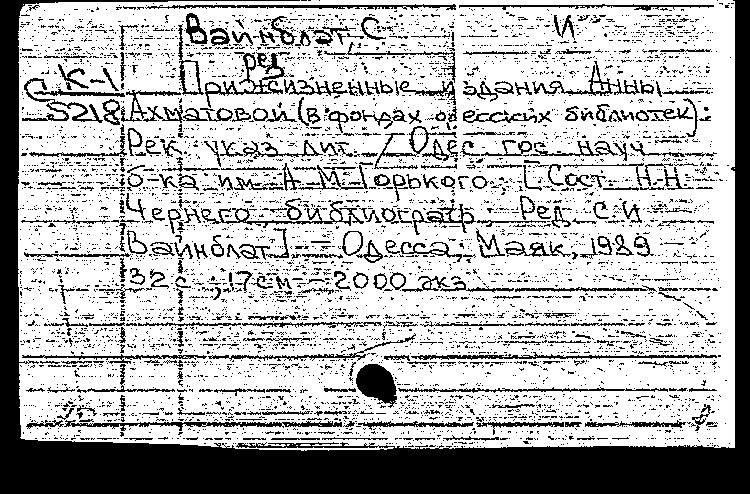 Вайнблат, С И
ред
К-1 Прижизненные издания Анны
С 5218 Ахматовой (в фондах одесских библиотек):
Рек. указ. лит. / Одес. гос. науч.
б-ка им. А. М. Горького; [Сост. Н. Н.
Чернего, библиограф; Ред. С. И.
Вайнблат]. — Одесса; Маяк, 1989
32 с.; 17 см — 2000 экз